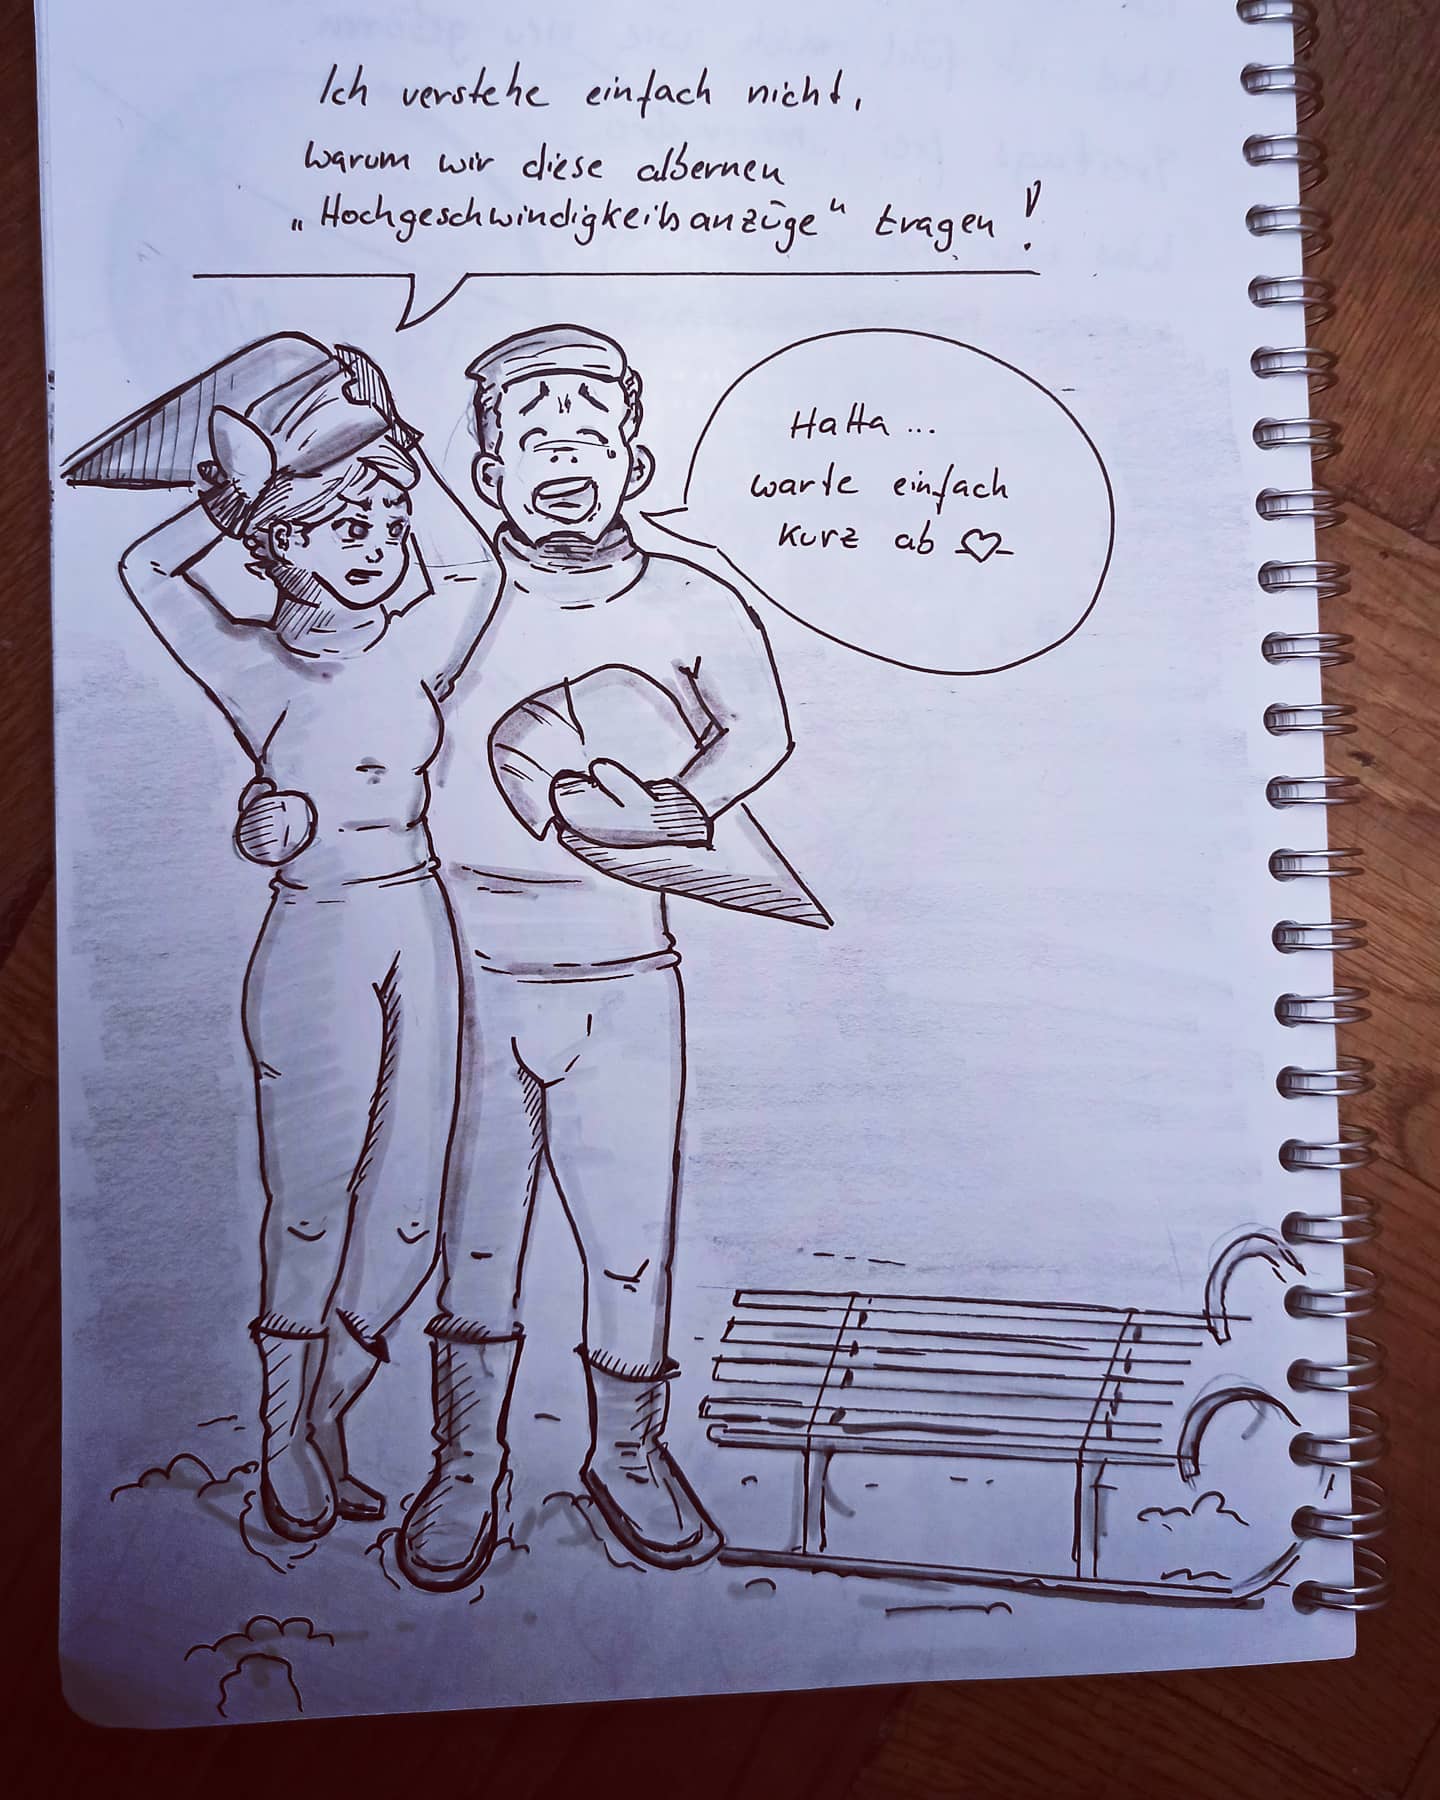 Ich verstehe einfach nicht,
warum wir diese albernen
„Hochgeschwindigkeitsanzüge" tragen!
HaHa...
warte einfach
kurz ab ♡